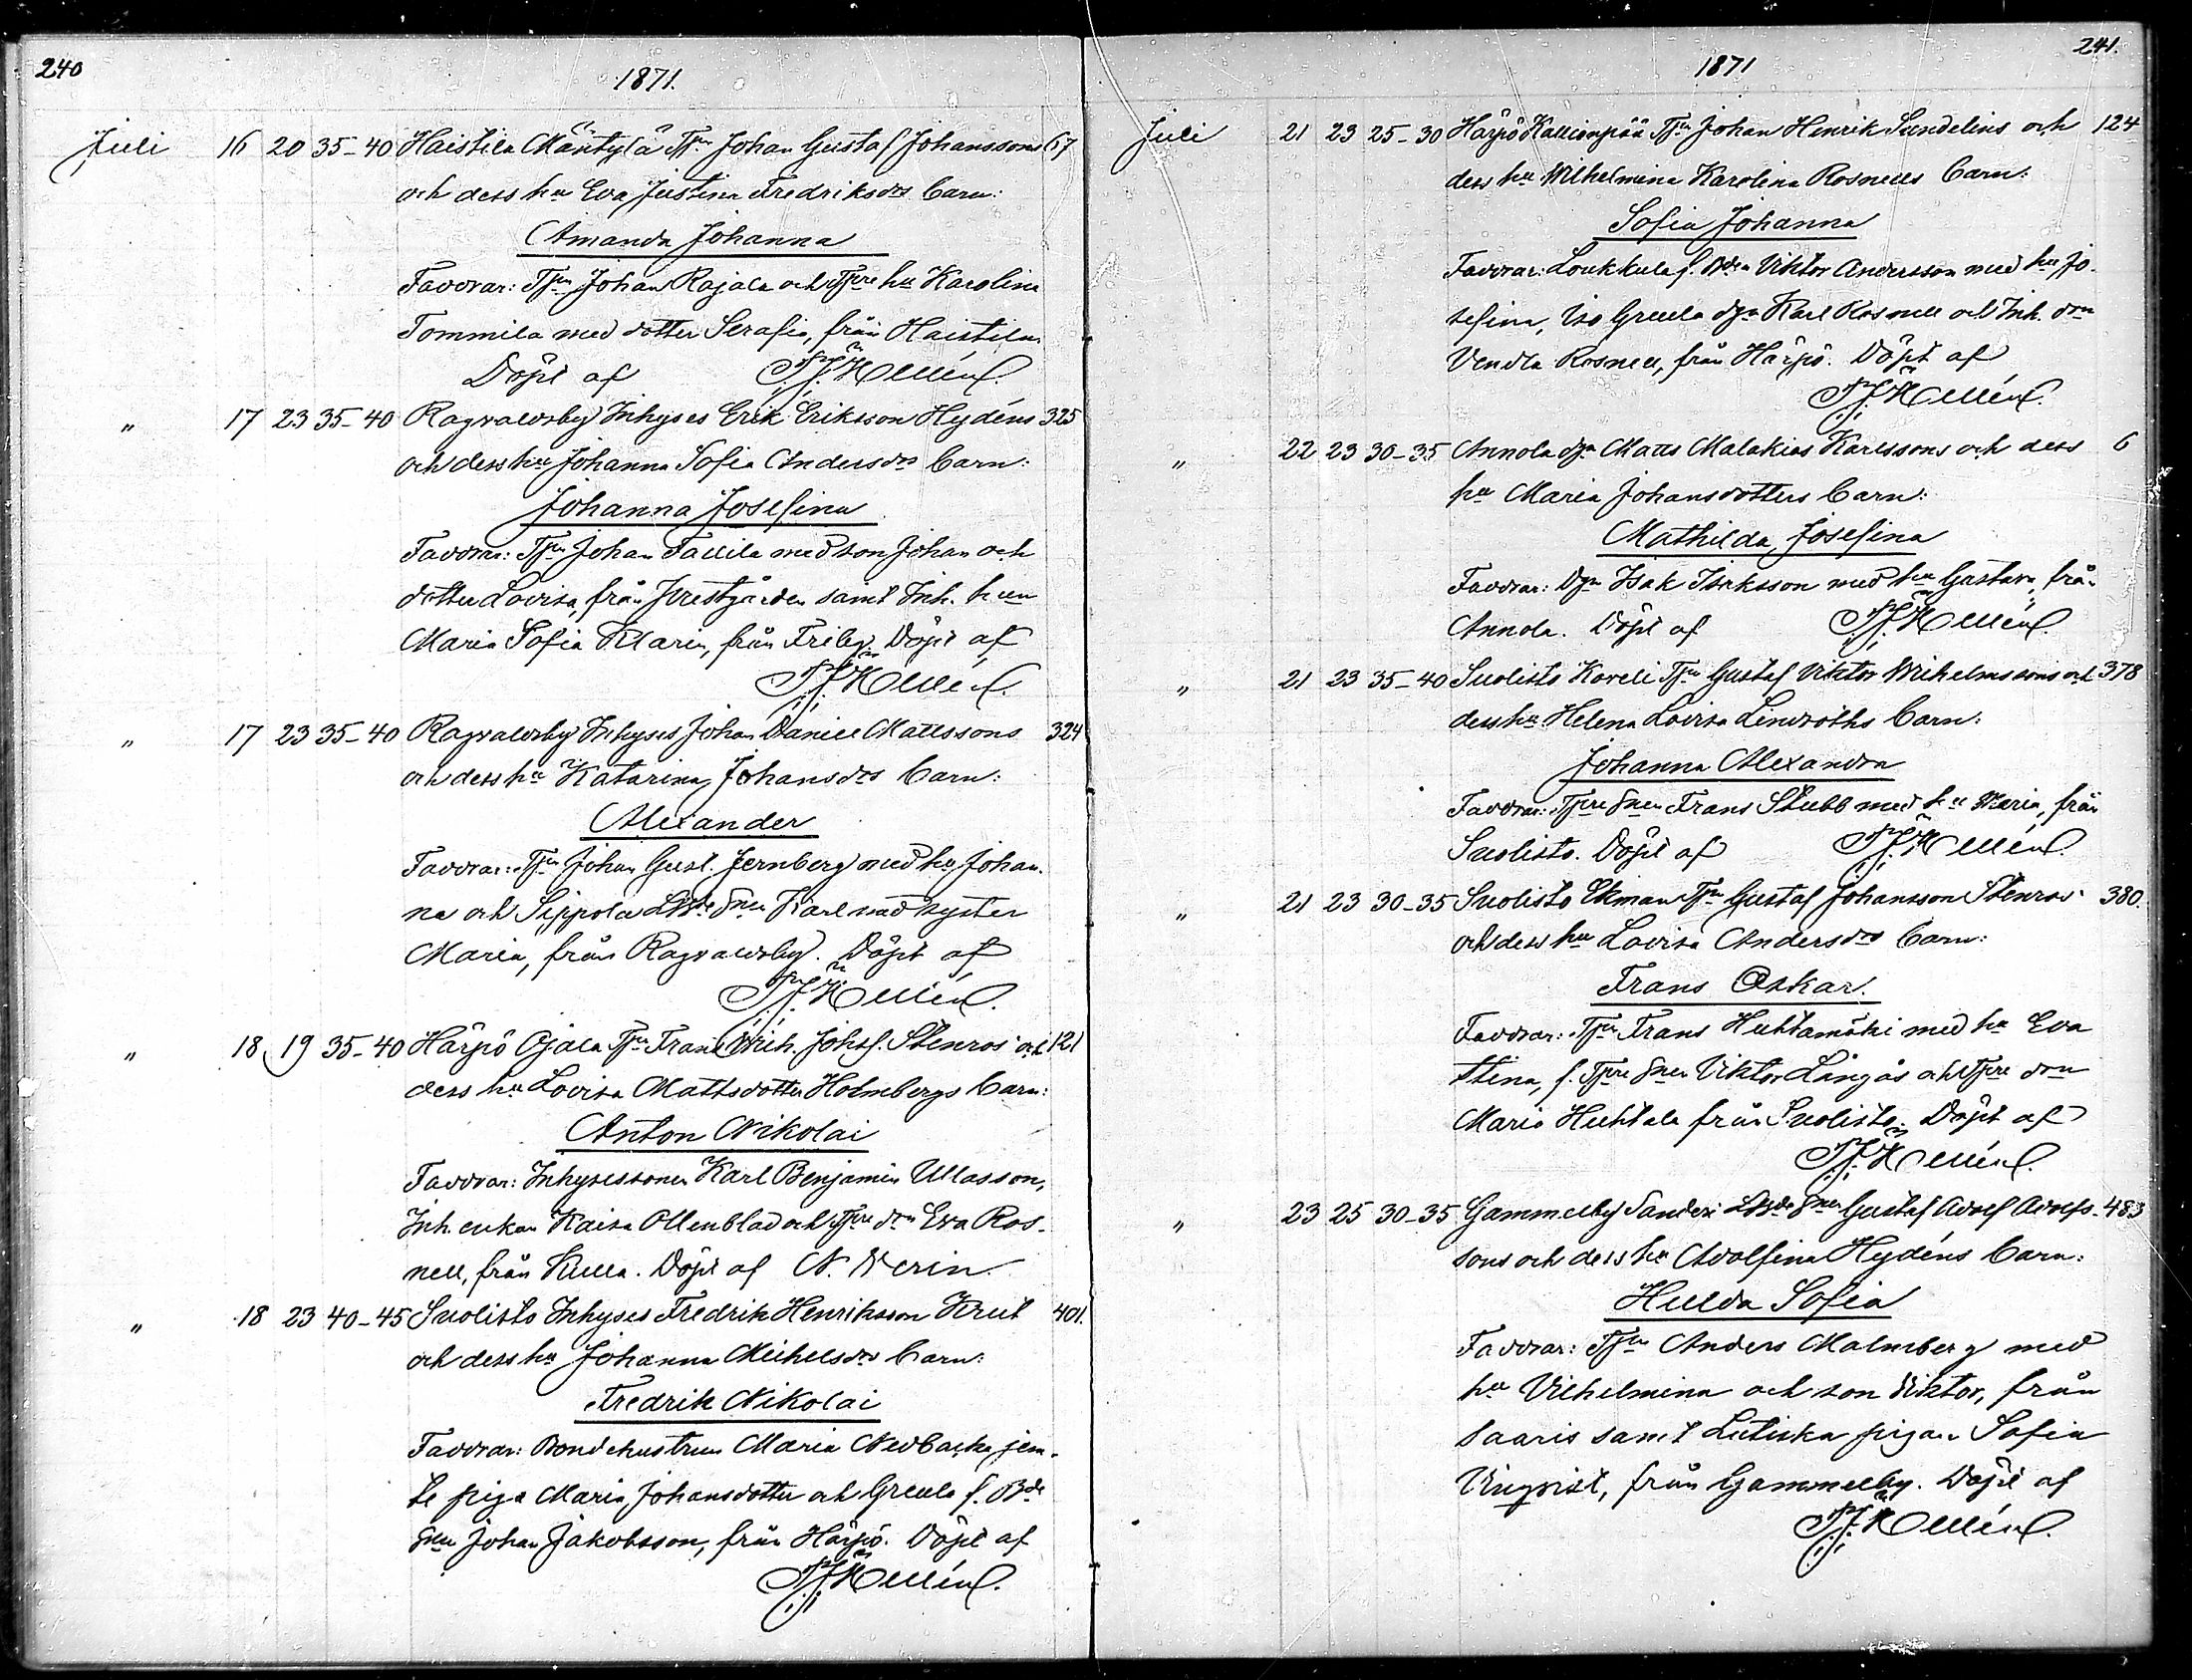 240
1871.
Juli 16 20 35-40 Haistila Mäntylä Tprn Johan Gustaf Johanssons 67
och dess hu Eva Justina Fredriksdrs barn:
Amanda Johanna
Faddrar: Tprn Johan Rajala och Tpre hu Karolina
Tommila med dotter Serafia, från Haistila
Döpt af
" 17 23 35-40 Ragvaldsby Inhyses Erik Eriksson Hydéns 325
och dess hu Johanna Sofia Andersdrs barn:
Johanna Josefina
Faddrar: Tprn Johan Tallila med son Johan och
dotter Lovisa, från Prestgården samt Inh. hun
Maria Sofia Klarin, från Friby. Döpt af
" 17 23 35-40 Ragvaldsby Inhyses Johan Daniel Mattssons 324
och dess hu Katarina Johansdrs barn:
Alexander
Faddrar: Tprn Johan Gust. Jernberg med hu Johan-
na och Sippola Snen Karl med syster
Maria, från Ragvaldsby. Döpt af
" 18 19 35-40 Härpö Ojala Tprn Frans Wilh. Johsf. Stenros' och 121
dess hu Lovisa Mattsdotter Holmbergs barn:
Anton Nikolai
Faddrar: Inhysessonen Karl Benjamin Ullasson,
Inh. enkan Kaisa Ollenblad och Tpre drn Eva Ros-
nell, från Kulla. Döpt af N. Nerin
" 18 23 40-45 Suolisto Inhyses Fredrik Henriksson Krut 401.
och dess hu Johanna Mickelsdrs barn:
Fredrik Nikolai
Faddrar: Bondehustrun Maria Nedbacka jem-
te piga Maria Johansdotter och Greula f. Bde
Snen Johan Jakobsson, från Härpö. Döpt af
241.
1871
Juli 21 23 25-30 Härpö Kallionpää Tprn Johan Henrik Sundelins och 124
dess hu Wilhelmina Karolina Rosnells barn:
Sofia Johanna
Faddrar: Loukkula f. Bden Viktor Andersson med hu Jo-
sefina, Iso Greula Karl Rosnell och Inh. drn
Vendla Rosnell, från Härpö. Döpt af
" 22 23 30-35 Annola Matts Malakias Karlssons och dess 6
hu Maria Johansdotters barn:
Mathilda Josefina
Faddrar: Isak Isaksson med hu Gustava, från
Annola. Döpt af
" 21 23 35-40 Suolisto Koreli Tprn Gustaf Viktor Wilhelmssons och 378
dess hu Helena Lovisa Lendroths barn:
Johanna Alexandra
Faddrar: Tpre Snen Frans Stubb med hu Maria, från
Suolisto. Döpt af
" 21 23 30-35 Suolisto Ekman Tprn Gustaf Johansson Stenros' 380.
och dess hu Lovisa Andersdrs barn:
Frans Oskar.
Faddrar: Tprn Frans Huhtamäki med hu Eva
Stina, f. Tpre Snen Viktor Långås och Tpre drn
Maria Huhtala från Suolisto. Döpt af
" 23 25 30-35 Gammelby Sanderi Snen Gustaf Adolf Adolfs- 483
sons och dess hu Adolfina Hydéns barn:
Hulda Sofia
Faddrar: Tprn Anders Malmberg med
hu Vilhelmina och son Viktor, från
Saaris samt Lutiska pigan Sofia
Vinqvist, från Gammelby. Döpt af